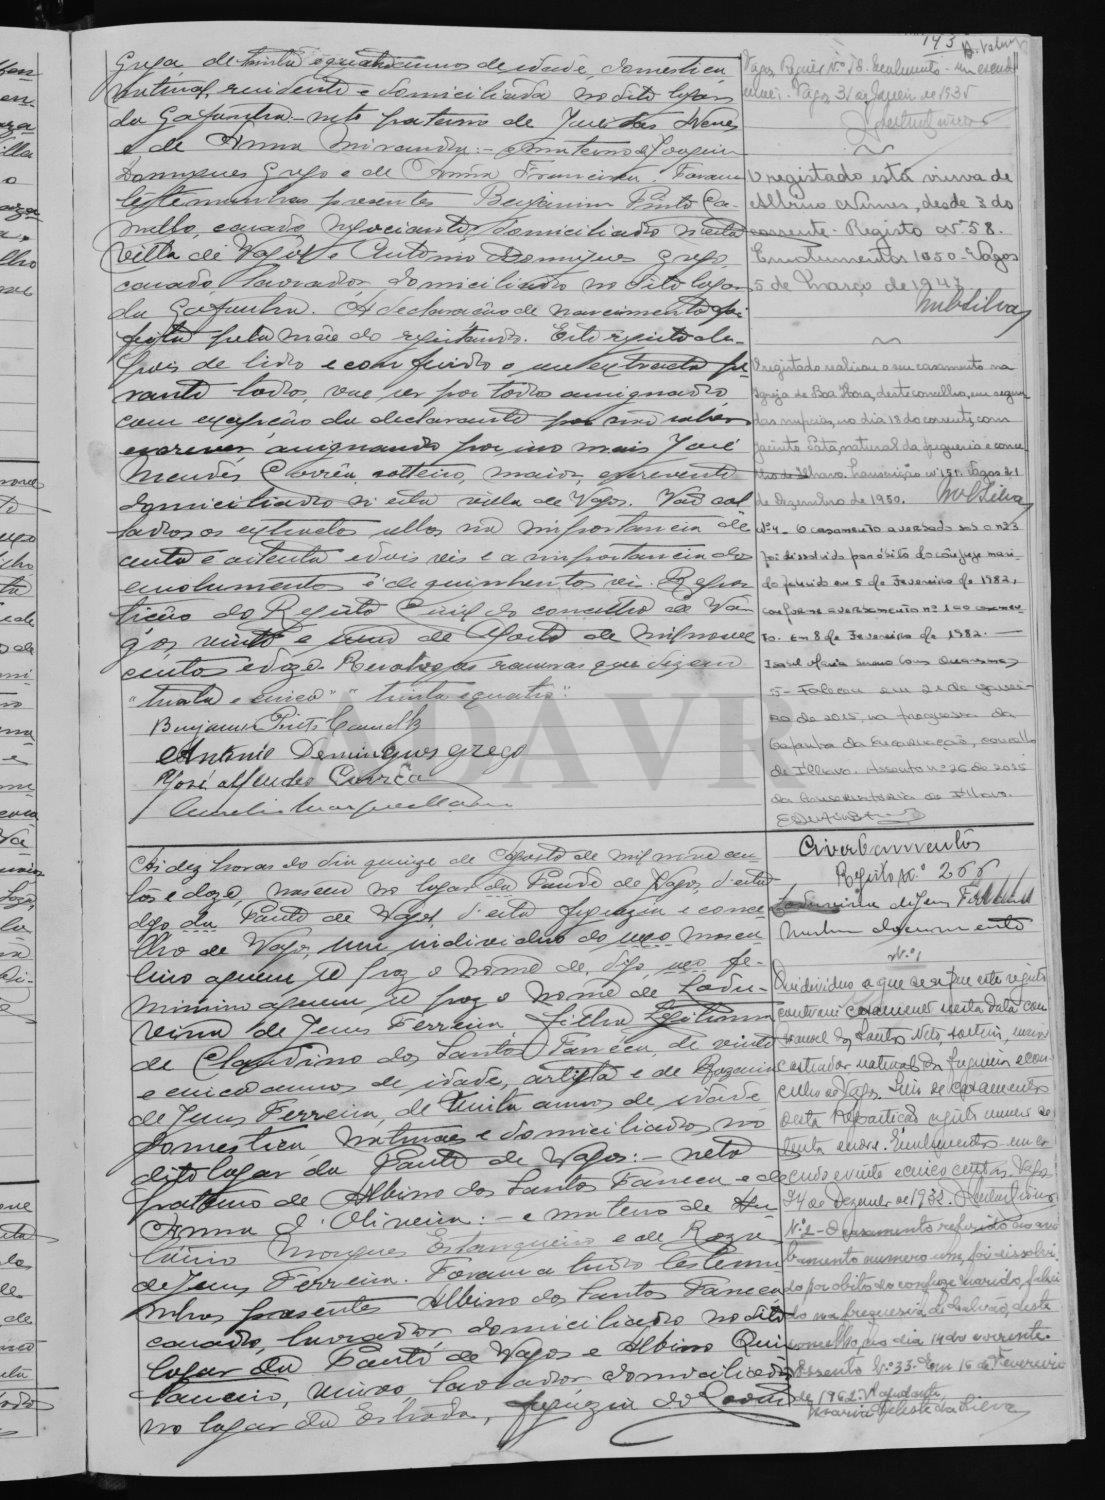 143
Grega de trinta e quatro annos de idade, domestica
naturaes, residente e domiciliada no dito logar
da Gafanha - neto paterno de José das Neves
e de Anna Miranda: - e materno de Joaquim
Domingues Grego e de Anna Francisca. Foram
testemunhas presentes Benjamim Pinto Ca-
mello, casado, negociante, domiciliado nesta
villa de Vagos e Antonio Domingues Grego,
casado lavrador, domiciliado no dito logar
da Gafanha. A declaração de nascimento foi
feita pela mãe do registando. Este registo de-
pois de lido e conferido o seu extracto pe-
rante todos, vae ser por todos assignado
com excepção da declarante por não saber
escrever, assignando por isso mais José
Mendes Corrêa, solteiro, maior, escrevente
domiciliado n'esta villa de Vagos. Vão col
lados os sellos na importancia de
cento e oitenta e dois reis e a importancia dos
emolumentos é de quinhentos reis. Repar
tição do Registo Civil do concelho de Va-
gos, vinte e um de Agosto de mil nove
centos e doze. Resalvo as rasuras que dizem
"trinta e cinco" "trinta e quatro".
Benjamim Pinto Camello
Antonio Domingues Grego
José Mendes Corrêa
Vagos, 31 de Janeiro de 1935
O registado está viuva de
Albino Nunes, desde 3 do
corrente. Registo Nº 58.
Emolumentos 10$50. Vagos
5 de Março de 194
MSilva
O registado realizou o seu casamento na
Igreja da Boa Hora, deste concelho, em segun
das nupcias, no dia 18 do corrente, com
Jacinto Pata, natural da freguesia e conce
lho de Ilhavo. Transcrição nº 151. Vagos, 21
de Dezembro de 1950. MSilva
Nº 4 - O casamento averbado sob o nº 3
foi dissolvido por óbito do cônjuge mari-
do falecido em 5 de Fevereiro de 1982,
conforme averbamento nº 1 ao assen-
to. Em 8 de Fevereiro de 1982.
5 - Faleceu em 21 de janei-
ro de 2015, na freguesia da
Gafanha da Encarnação, concelho
de Ílhavo. Assento nº 26 de 2015
da Conservatória de Ílhavo.
ADAVR
Ás dez horas do dia quinze de Agosto de mil nove cen
tos e doze, nasceu no logar da Ponte de Vagos, d'esta
digo, da Ponte de Vagos, d'esta freguezia e conce
lho de Vagos, um individuo do sexo mascu
lino a quem se poz o nome de, digo, sexo fe-
minino a quem se poz o nome de Ladu-
vina de Jesus Ferreira, filha legitima
de Claudino dos Santos Faneca, de vinte
e cinco annos de idade, artista e de Rozaria
de Jesus Ferreira, de trinta annos de idade
domestica, naturaes e domiciliados no
dito logar da Ponte de Vagos: - neta
paterno de Albino dos Santos Faneca e de
Anna d'Oliveira: - e materno de
Marques Estanqueiro e de Roza
de Jesus Ferreira. Foram a tudo testemu
nhas presentes Albino dos Santos Faneca
casado, lavrador domiciliado no dito
logar da Ponte de Vagos e Albino Qui
taneiro, viuvo, lavrador domiciliado
no logar da Estrada, freguezia do Covão
Averbamentos
Registo N.º 266
Laduvina de Jesus Ferreira
Nenhum documento
N.º 1
O individuo a que se refere este registo
contraiu casamento nesta data com
Manuel dos Santos Neto, solteiro, maior
natural da freguesia e con-
celho de Vagos. de casamentos
desta Repartição registo numero se
tenta e nove. Emolumentos um es
cudo e vinte e cinco centos. Vagos,
24 de Dezembro de 1932.
N.º 2 - O casamento referido no aver
bamento numero um, foi dissolvi
do por óbito do conjuge marido, faleci
do na freguesia de Calvão, deste
concelho, no dia 14 do corrente.
Assento N.º 33. Em 16 de Fevereiro
de 1962. A ajudante,
Maria Celeste da Silva